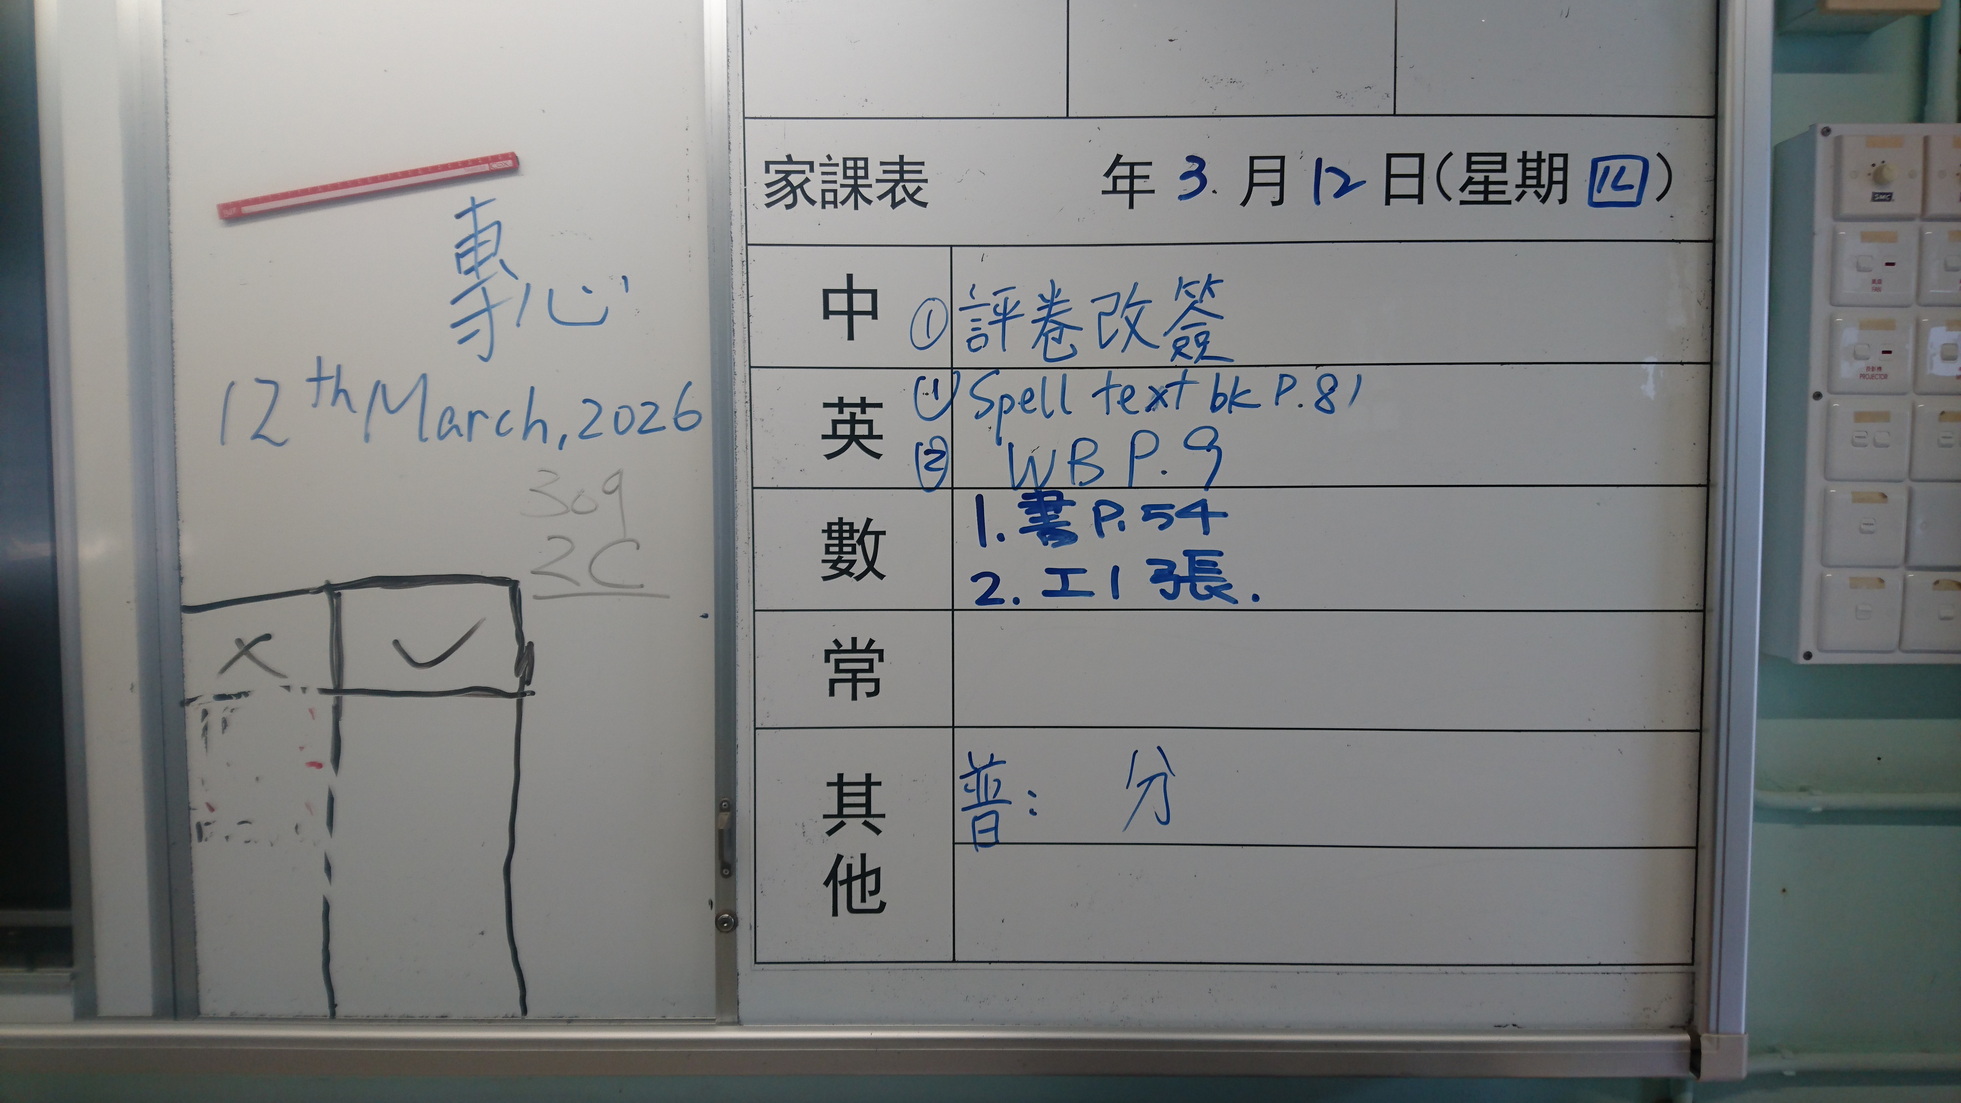 專心
12th March, 2026
309
2C
× ✓
家課表 年 3 月 12 日(星期 四)
中 ① 評卷改簽
英 (1) Spell text bk P.81
(2) WB P.9
數 1. 書 P.54
2. 工1張.
常
其他 普: 分